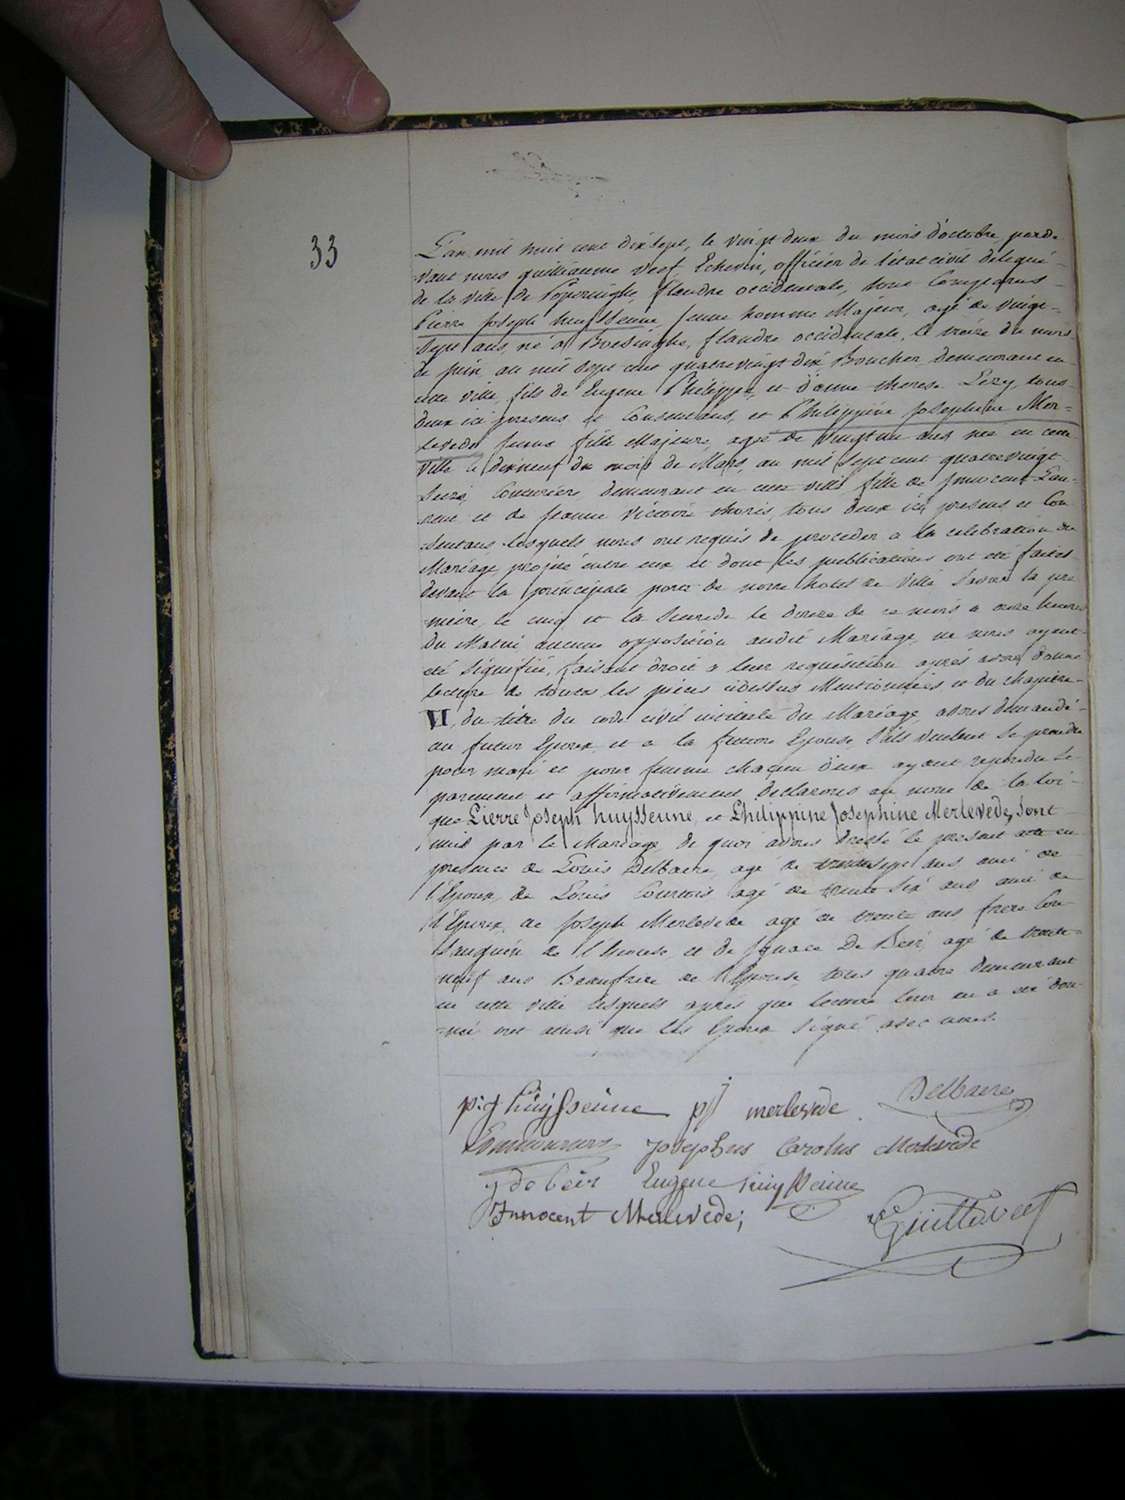 33
L'an mil huit cent dix sept, le vingt deux du mois d'octobre parde
vant nous guilliaume Veef Echevin, officier de l'etat civil delegué
de la ville de Poperinghe, flandre occidentale, sont Comparus
Pierre Joseph huÿssenne jeune homme Majeur, agé de vingt
sept ans, né a Boesinghe, flandre occidentale, le treize du mois
de juin, an mil sept cent quatrevingt dix Boucher demeurant en
cette ville, fils de Eugene Philippe, et d'anne therese Lezy tous
deux ici presens et Consentans, et Philippine Josephine Mer=
levede jeune fille Majeure, agée de vingt un ans née en cette
ville le dixneuf du mois de Mars, an mil sept cent quatrevingt
Seize, Couturière, demeurant en cette ville fille de Innocent Lau-
rent et de jeanne Victoire thoris, tous deux ici presens et Con
sentans lesquels nous ont requis de proceder a la celebration du
Mariage projeté entre eux et dont les publications ont été faites
devant la principale porte de notre hotel de Ville Savoir la pre
mière, le cinq et la Seconde le douze de ce mois a onze heures
du Matin aucune opposition audit Mariage ne nous ayant
été signifiée, faisant droit a leur requisition après avoir donné
lecture de toutes les pièces cidessus Mentionnées, et du chapitre
VI, du titre du code civil intitulé du Mariage, avons demandé
au futur Epoux et a la future Epouse S'ils veulent Se prendre
pour mari et pour femme chacun d'eux ayant repondu Se=
parement et affirmativement, declarons au nom de la loi
que Pierre Joseph huysseune, et Philippine Josephine Merlevede, Sont
unis par le Mariage de quoi avons dressé le present acte en
presence de Louis Delbaere, agé de trentesept ans ami de
l'Epoux, de Louis agé de trente Six ans ami de
l'Epoux, de Joseph Merlevede agé de trente ans frere Con
Sanguin de l'Epouse et de Ignace De Beir agé de trente
neuf ans Beaufrère de l'Epouse, tous quatre demeurant
en cette ville lesquels après que lecture leur en a été don-
né ont ainsi que les Epoux Signé avec nous.
p:j huijsseune pj merlevede Delbaere
Josephus Carolus Merlevede
j de beir Eugene huijsseune
Innocent Merlevede;